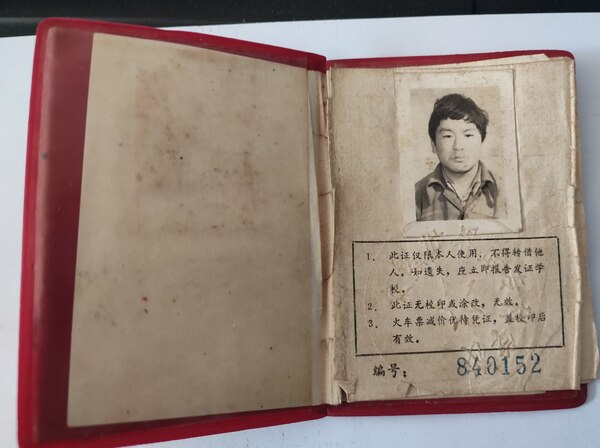 1. 此证仅限本人使用，不得转借他
人。如遗失，应立即报告发证学
校。
2. 此证无校印或涂改，无效。
3. 火车票减价优待凭证，盖校印后
有效。
编号：840152